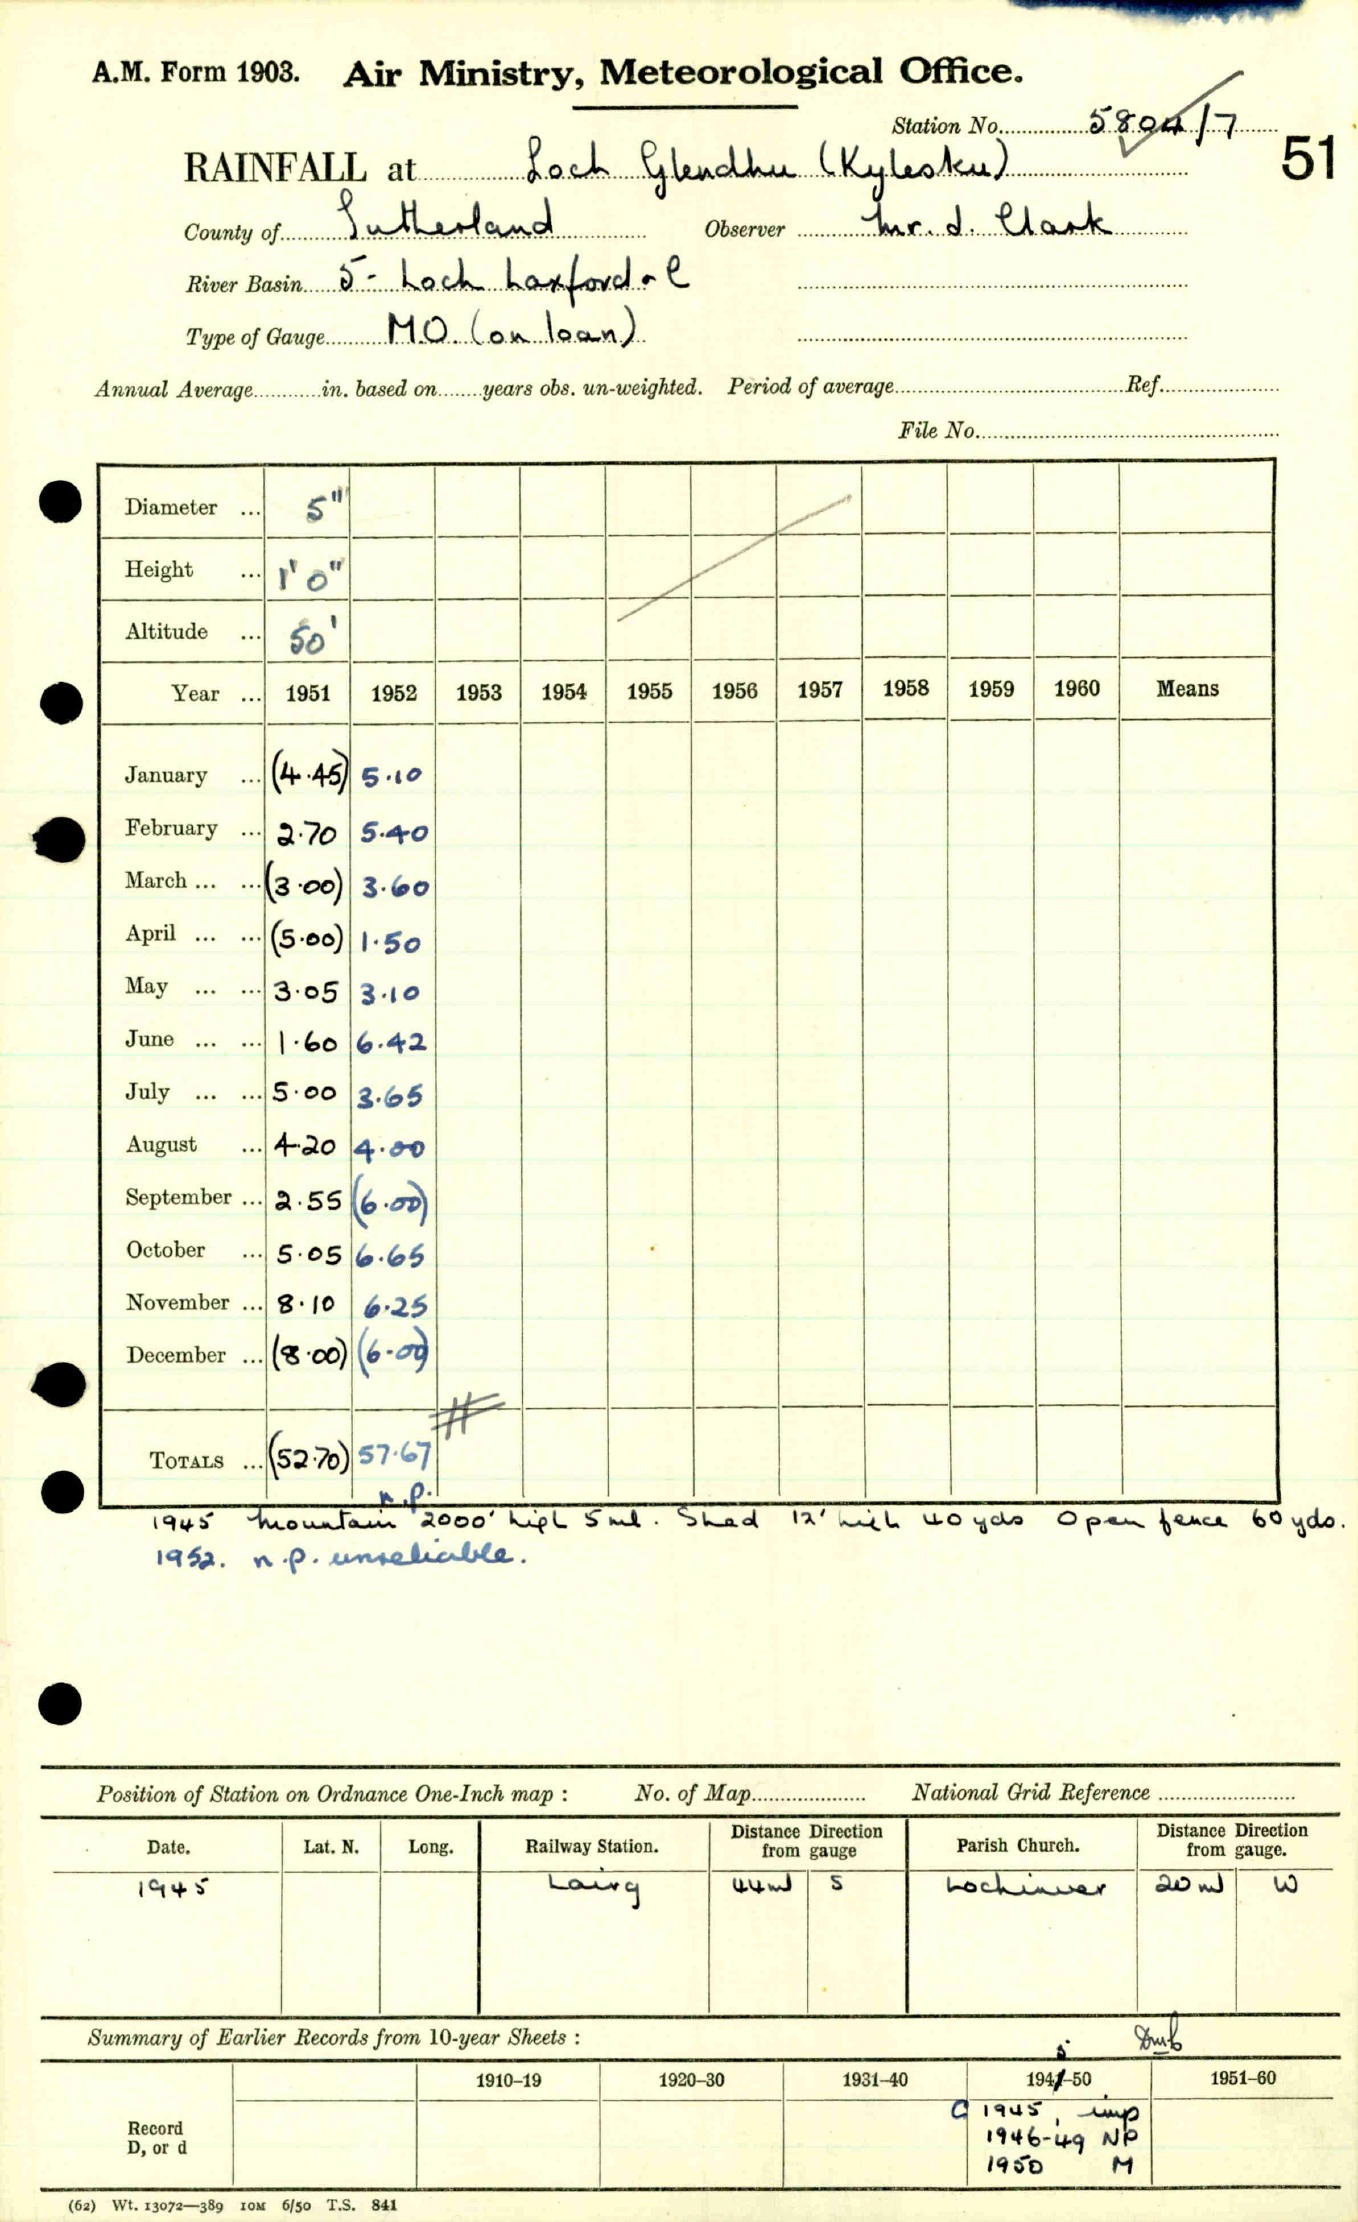 A.M. Form 1903. Air Ministry, Meteorological Office.
Station No. 5804/7
51
RAINFALL at Loch Glendhu (Kylesku)
County of Sutherland Observer Mr. J. Clark
River Basin 5 - Loch Laxford - C
Type of Gauge M.O. (on loan)
Annual Average in. based on years obs. un-weighted. Period of average Ref.
File No.
Diameter ... 5"
Height ... 1' 0"
Altitude ... 50'
Year ... 1951 1952 1953 1954 1955 1956 1957 1958 1959 1960 Means
January ... (4.45) 5.10
February ... 2.70 5.40
March ... ... (3.00) 3.60
April ... ... (5.00) 1.50
May ... ... 3.05 3.10
June ... ... 1.60 6.42
July ... ... 5.00 3.65
August ... 4.20 4.00
September ... 2.55 (6.00)
October ... 5.05 6.65
November ... 8.10 6.25
December ... (8.00) (6.00)
TOTALS ... (52.70) 57.67
n.p.
1945 Mountain 2000' high 5 ml. Shed 12' high 40 yds Open fence 60 yds.
1952. n.p. unreliable.
Position of Station on Ordnance One-Inch map : No. of Map National Grid Reference
Date. Lat. N. Long. Railway Station. Distance Direction from gauge Parish Church. Distance Direction from gauge.
1945 Lairg 44 ml S Lochinver 20 ml W
Summary of Earlier Records from 10-year Sheets :
5
1910–19 1920–30 1931–40 1941–50 1951–60
Record D, or d
C 1945, imp
1946-49 NP
1950 M
(62) Wt. 13072—389 10M 6/50 T.S. 841